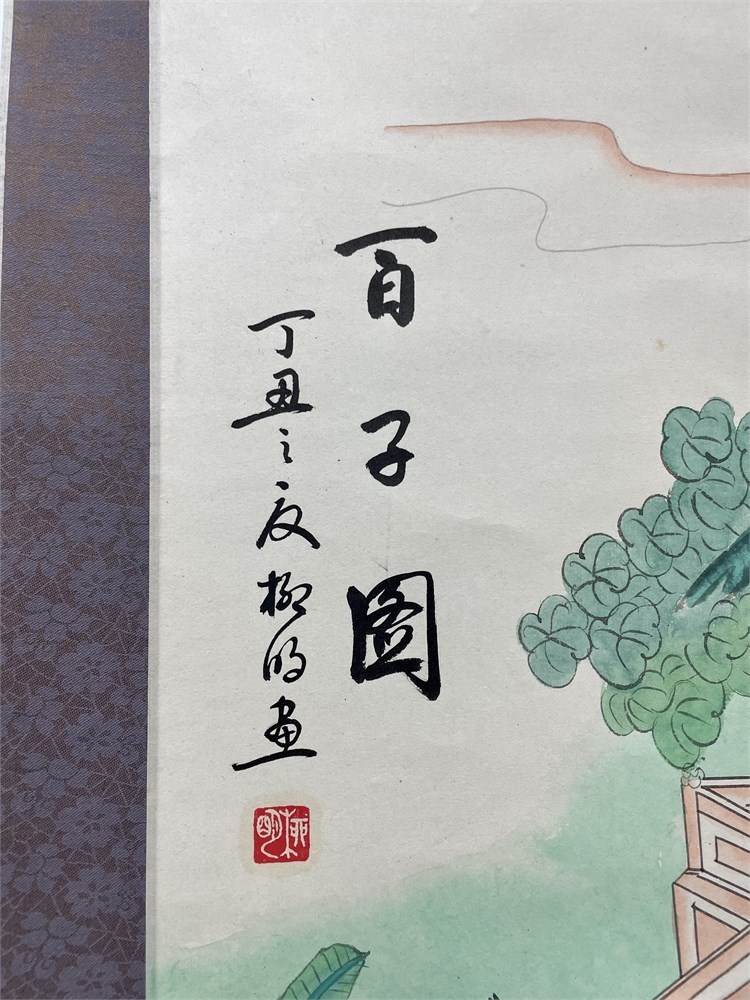 百子图
丁丑之夏柳明画
柳明